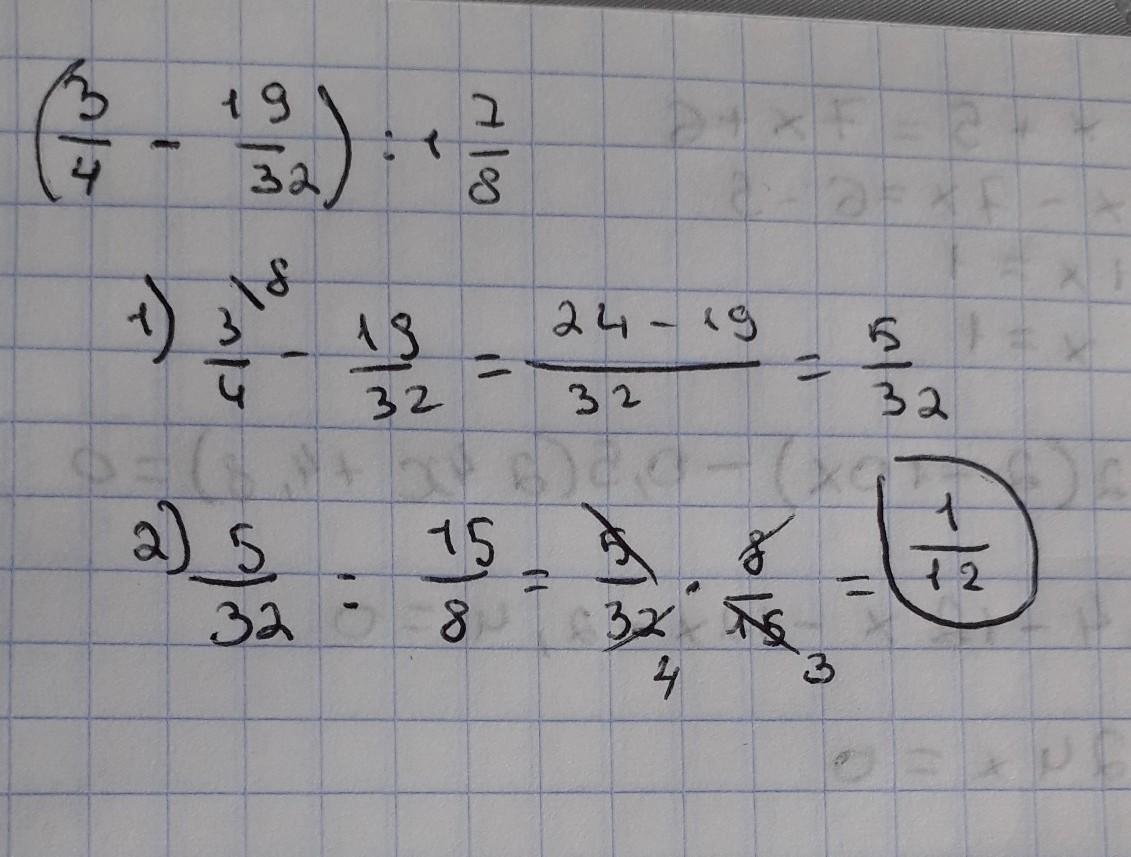 (3/4 - 19/32) : 1 7/8
1) 3/4 \8 - 19/32 = 24 - 19/32 = 5/32
2) 5/32 : 15/8 = 5/32 · 8/15 = 1/12
4 3